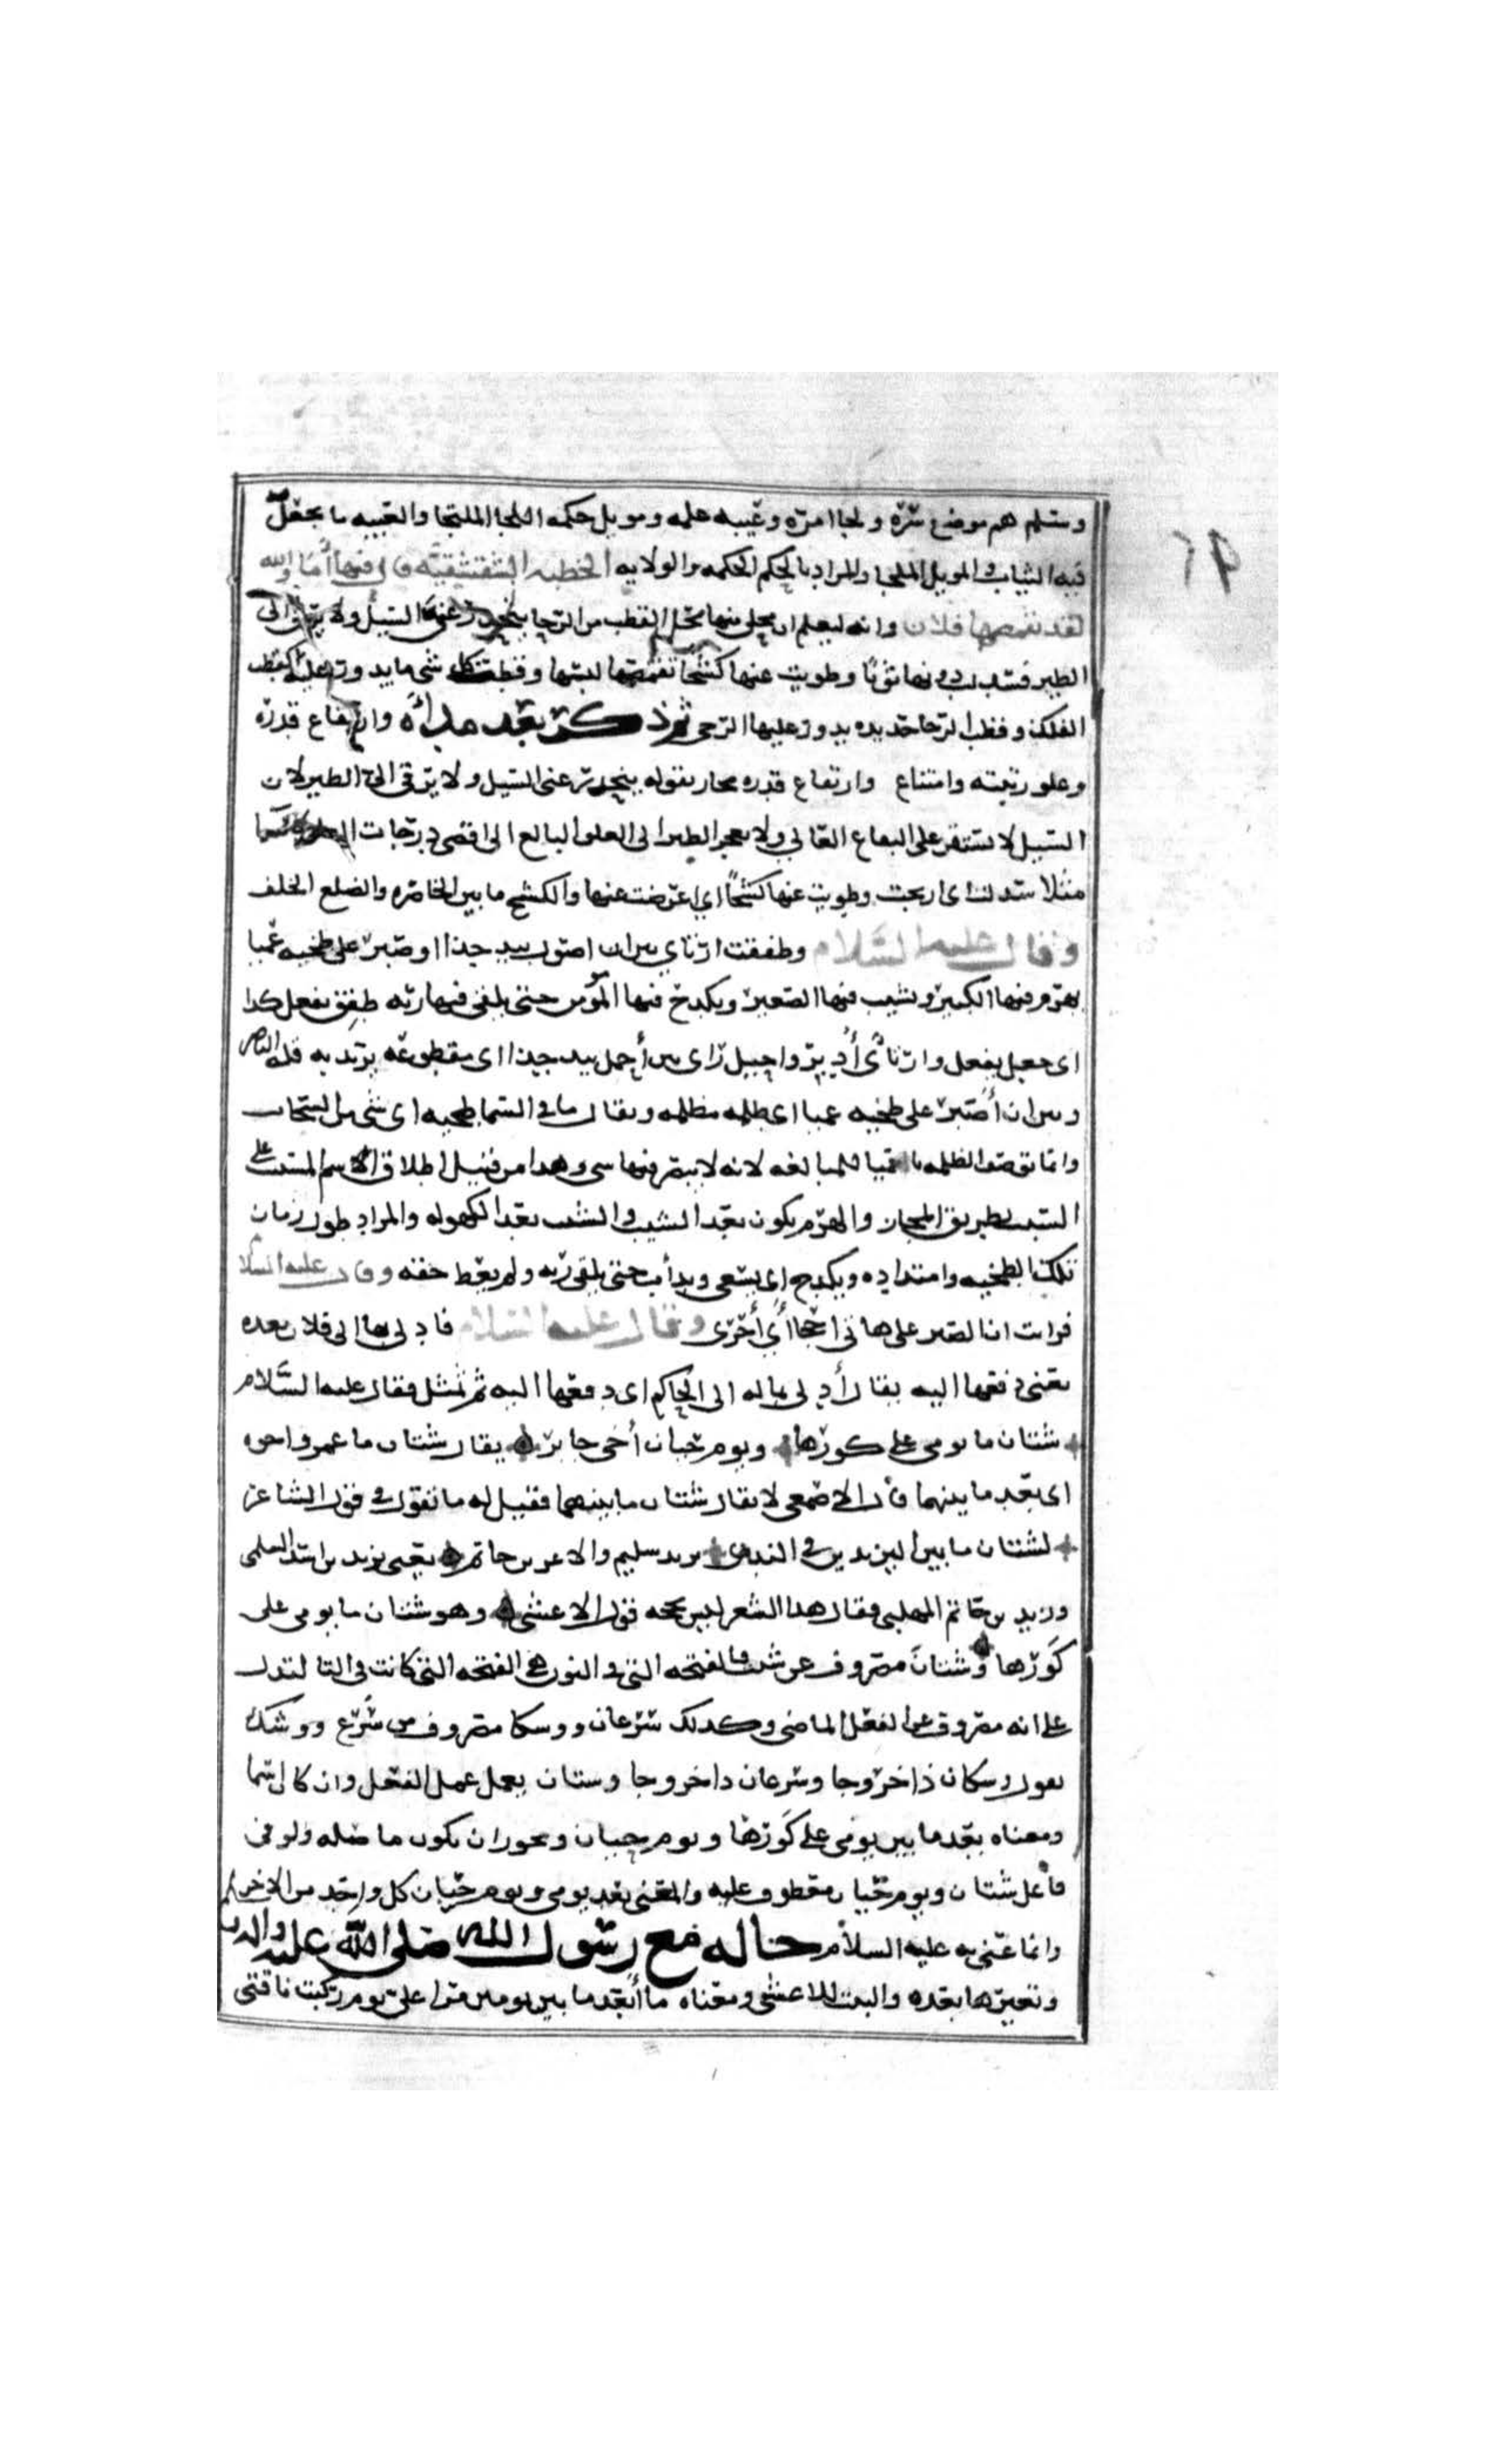 ٩٢
وسلم هم موضع سره ولجا امره وعيبه علمه وموئل حكمه اللجا الملتجا والعيبه ما يجعل
فيه الثياب والمويل الملجا والمراد بالحكم الحكمه والولايه الخطبه الشقشقيه قال فيها أما والله
لقد تقمصها فلان وانه ليعلم ان محلي منها محل القطب من الرحا ينحدر عني السيل ولا يرقى الى
الطير فسدلت دونها ثوبًا وطويت عنها كشحًا تقمصها لبسها وقطب كل شي ما يدور عليه كقطب
الفلك وقطب الرحا حديده يدور عليها الرحى ثم ذكر بعد مداه وارتفاع قدره
وعلو رتبته وامتناع وارتفاع قدره مجاز بقوله ينحدر عني السيل ولا يرقى الي الطير لان
السيل لا يستقر على البقاع العالي ولا الطير الى العلو البالع الى اقصى درجات
مثلا سدلت اى ارخيت وطويت عنها كشحًا اي اعرضت عنها والكشح ما بين الخاصره والضلع الخلف
وقال عليه السلام وطفقت ارتاي بين ان اصول بيد جذا او صبر على طخيه عميا
يهرم فيها الكبير ويشيب فيها الصغير ويكدح فيها المؤمن حتى يلقى فيها ربه طفق يفعل كدا
اى جعل يفعل وارتأى أُدبر واجيل راى بين أحمل بيد جذا اى مقطوعه يريد به قله الناصر
وبين ان أصبر على طخيه عميا اى ظلمه مظلمه ويقال ما في السما طخيه اى شي من السحاب
وانما توصف الظلمه بالعميا للمبالغه لانه لا يبصر فيها شي وهدا من قبيل اطلاق الاسم المسبب على
السبب بطريق المجاز والهرم يكون بعد الشيب والشيب بعد الكهوله والمراد طول زمان
تلك الطخيه وامتداده ويكدح اى يسعى ويدأب حتى يلقى ربه ولم يعط حقه وقال عليه السلام
فرايت ان الصبر على هاتى احجا أي أحرى وقال عليه السلام فادلى بها الى فلان بعده
يعنى دفعها اليه يقال أدلى بماله الى الحاكم اى دفعها اليه ثم تمثل فقال عليه السلام
شتان ما يومي على كورها ويوم حيان أخى جابر يقال شتان ما عمرو واخوه
اى بعد ما بينهما قال الاصمعى لا يقال شتان ما بينهما فقيل له ما تقول في قول الشاعر
لشتان ما بين اليزيدين في الندى يزيد سليم والاعر بن حاتم يعني يزيد بن اسد السلمى
ويزيد بن حاتم المهلبى فقال هدا الشعر ليس بحجه قول الاعشى وهو شتان ما يومى على
كورها وشتان مصروف عن شتت فالفتحه التي في النون هي الفتحه التى كانت في التا لتدل
على انه مصروف عن الفعل الماضى وكدلك سرعان ووسكان مصروف من سرع ووشك
يقول وسكان ذا خروجا وسرعان داخروجا وستان يعمل عمل الفعل وان كان اسما
ومعناه بعد ما بين يومى على كورها ويوم حيان ويجوز ان يكون ما صله ويومى
فاعل شتان ويوم حيان معطوف عليه والمعنى بعد يومى ويوم حيان كل واحد من الاخر
وانما عنى به عليه السلام حاله مع رسول الله صلى الله عليه واله
وتغيرها بعده والبيت للاعشى ومعناه ما أبعد ما بين يومين مرا على يوم ركبت ناقتى